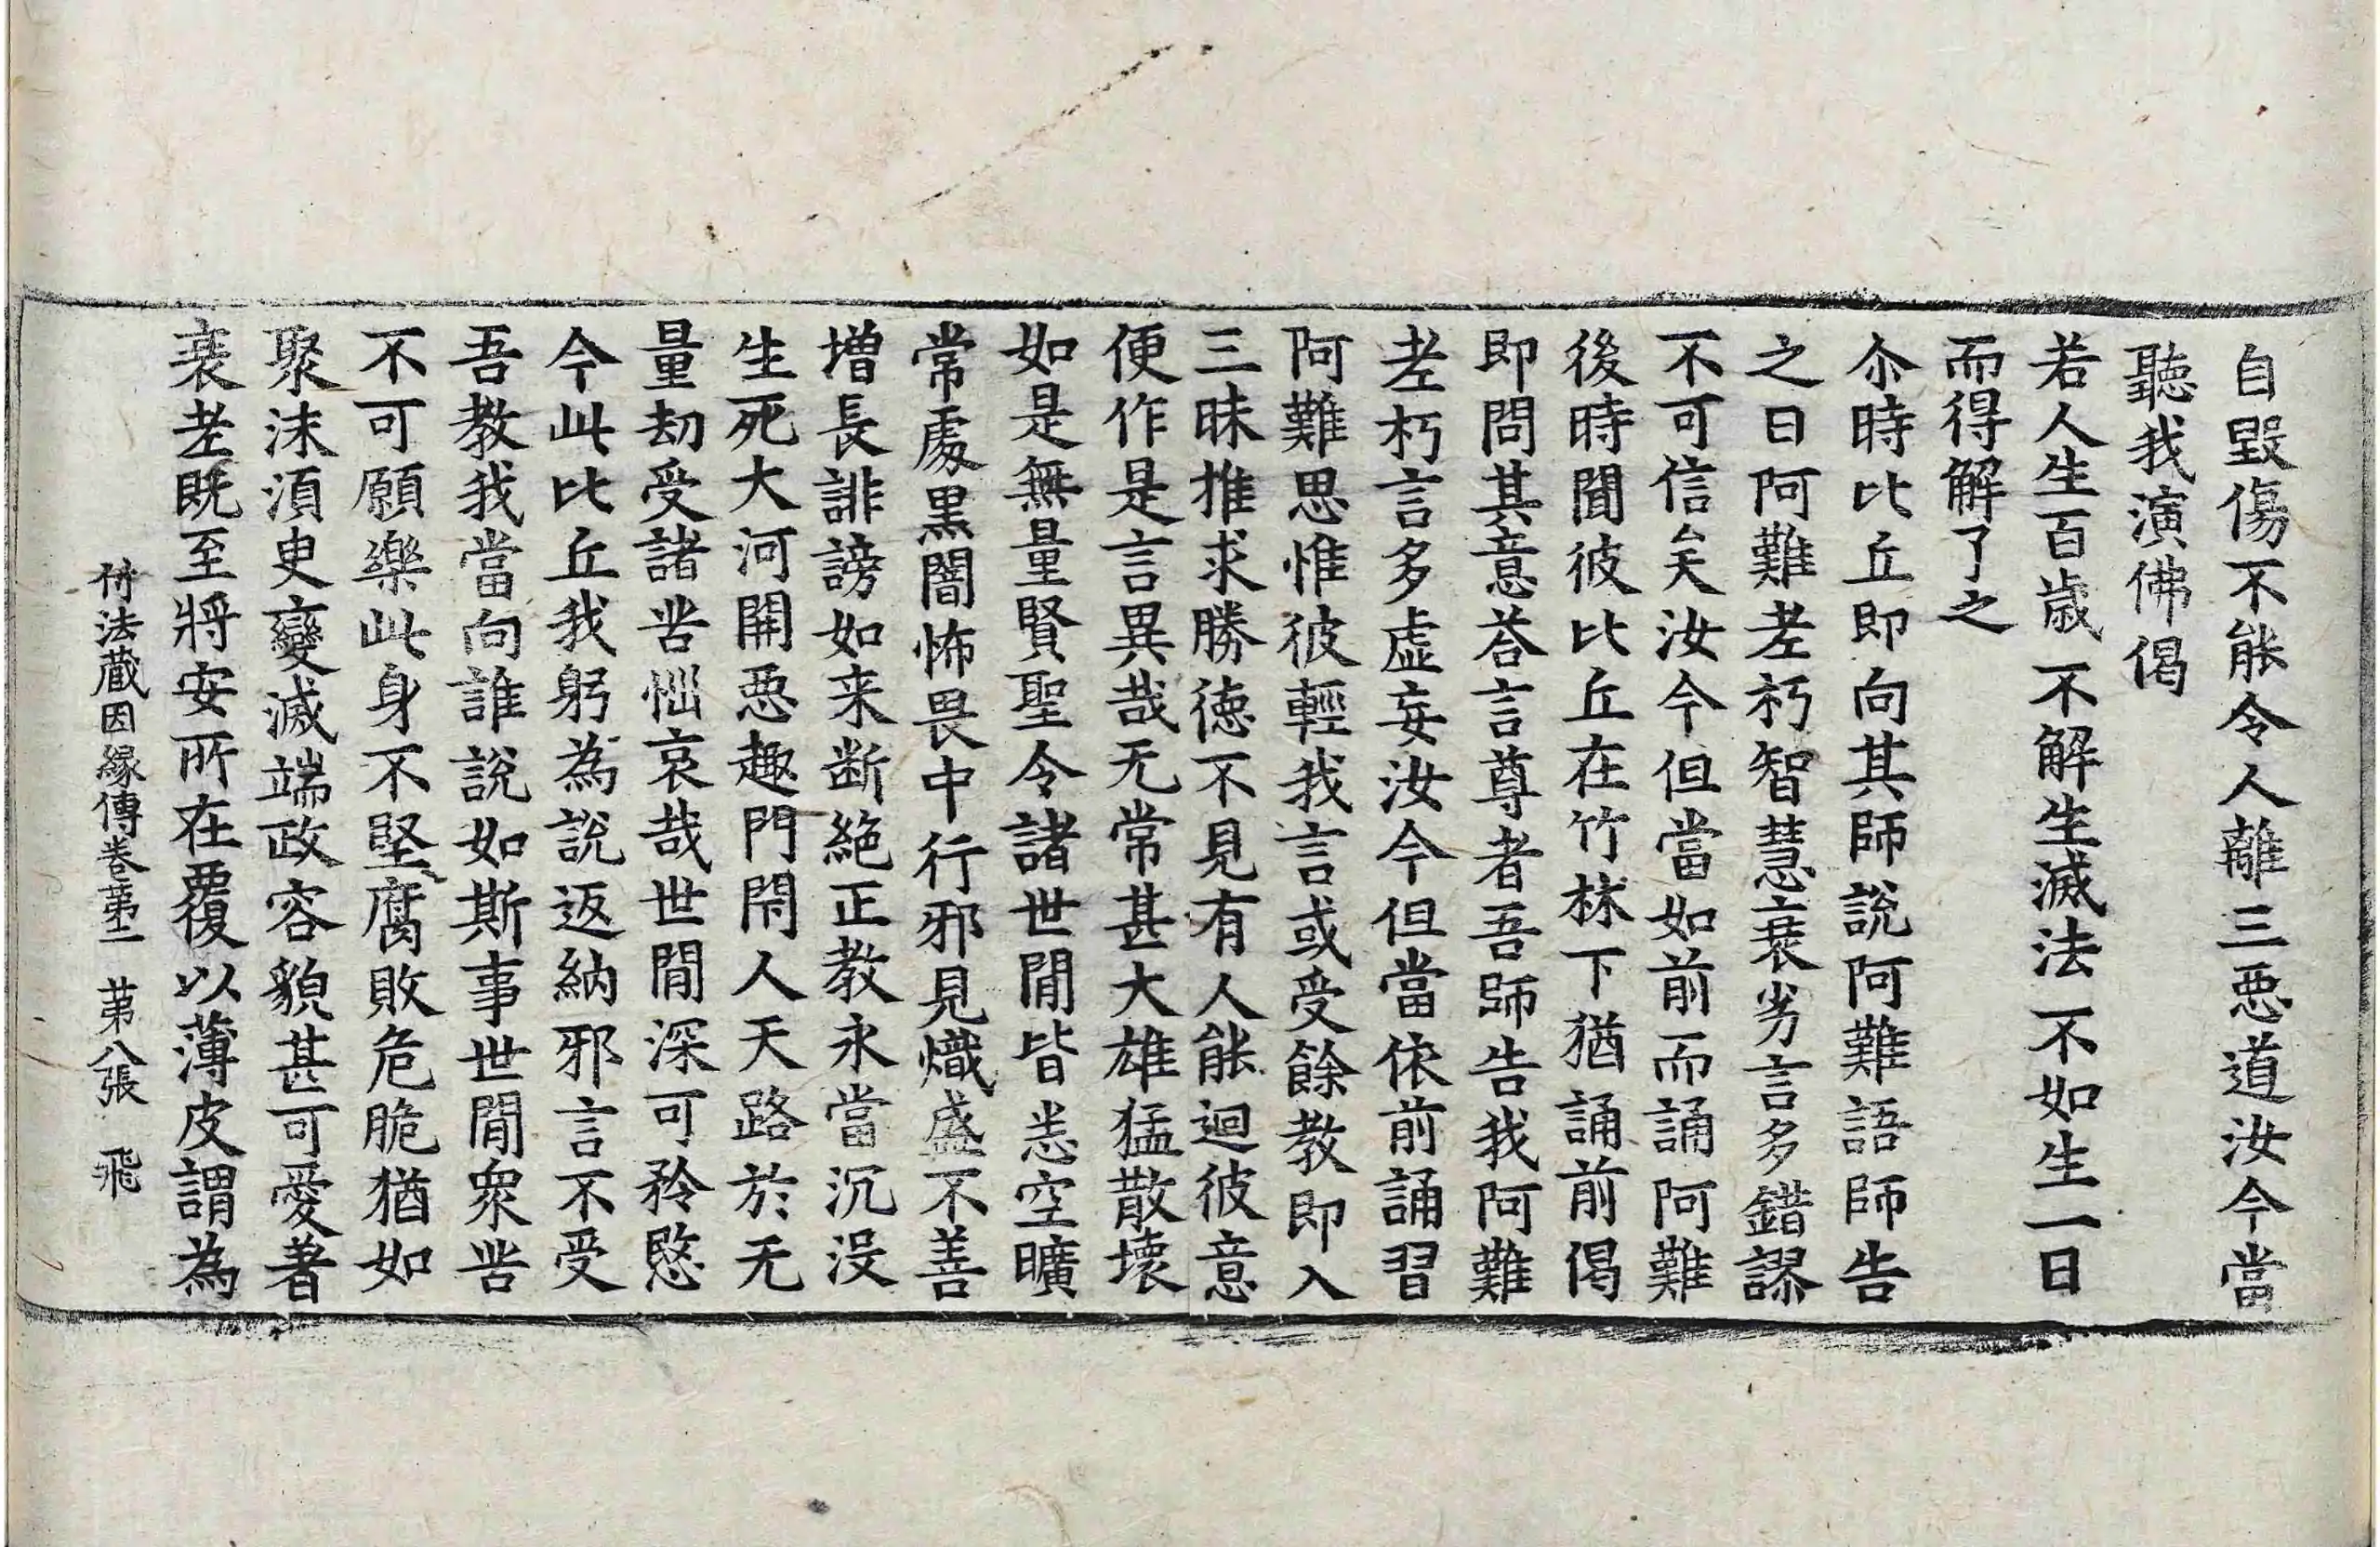 自毀傷不能令人離三惡道汝今當
聽我演佛偈
若人生百歲 不解生滅法 不如生一日
而得解了之
尒時比丘即向其師說阿難語師告
之曰阿難老朽智慧衰劣言多錯謬
不可信矣汝今但當如前而誦阿難
後時聞彼比丘在竹林下猶誦前偈
即問其意荅言尊者吾師告我阿難
老朽言多虛妄汝今但當依前誦習
阿難思惟彼輕我言或受餘教即入
三昧推求勝德不見有人能迴彼意
便作是言異哉无常甚大雄猛散壞
如是無量賢聖令諸世間皆悉空曠
常處黑闇怖畏中行邪見熾盛不善
增長誹謗如来断絕正教永當沉沒
生死大河開惡趣門閇人天路於无
量劫受諸苦惱哀哉世間深可矜愍
今此比丘我躬為說返納邪言不受
吾教我當向誰說如斯事世間衆苦
不可願樂此身不堅腐敗危脆猶如
聚沫須臾變滅端政容貌甚可愛著
衰老既至將安所在覆以薄皮謂為
付法藏因緣傳卷第二 第八張 飛